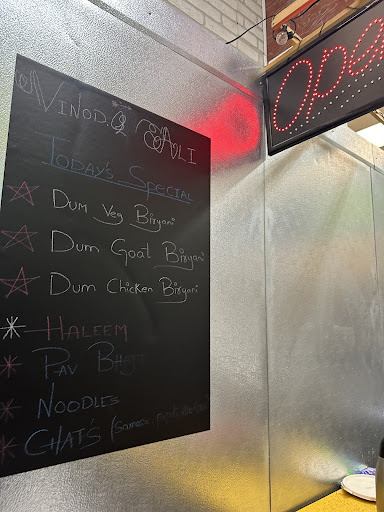 VINOD.Q ALI
TODAY'S SPECIAL
DUM VEG BIRYANI
DUM GOAT BIRYANI
DUM CHICKEN BIRYANI
HALEEM
PAV BHAJI
NOODLES
CHAT'S (SAMOSA
Ope